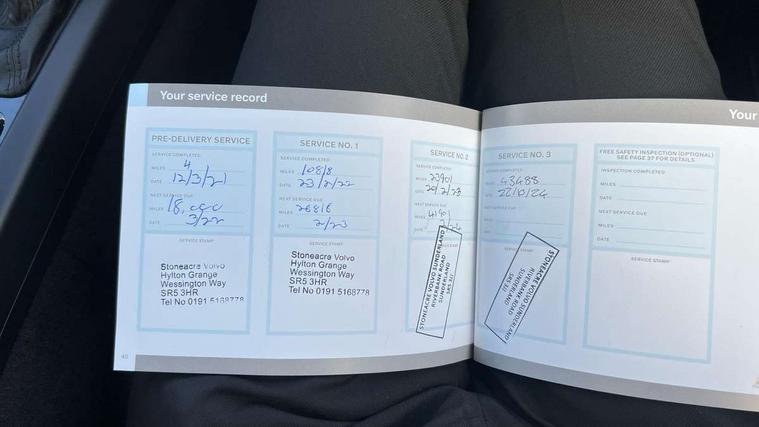 Your service record
Your
PRE-DELIVERY SERVICE
SERVICE COMPLETED:
MILES 4
DATE 12/3/21
NEXT SERVICE DUE
MILES 18,000
DATE 3/22
SERVICE STAMP
Stoneacre Volvo
Hylton Grange
Wessington Way
SR5 3HR
Tel No 0191 5168778
SERVICE NO. 1
SERVICE COMPLETED:
MILES 10818
DATE 23/2/22
NEXT SERVICE DUE
MILES 26816
DATE 2/23
SERVICE STAMP
Stoneacre Volvo
Hylton Grange
Wessington Way
SR5 3HR
Tel No 0191 5168778
SERVICE NO. 2
SERVICE COMPLETED:
MILES 23901
DATE 29/2/23
NEXT SERVICE DUE
MILES 41901
DATE 2/24
STONEACRE VOLVO SUNDERLAND
RIVERBANK ROAD
SUNDERLAND
SR5 3JJ
SERVICE NO. 3
SERVICE COMPLETED:
MILES 43488
DATE 22/10/24
NEXT SERVICE DUE
MILES
DATE
SERVICE STAMP
STONEACRE VOLVO SUNDERLAND
RIVERBANK ROAD
SUNDERLAND
SR5 3JJ
FREE SAFETY INSPECTION (OPTIONAL)
SEE PAGE 37 FOR DETAILS
INSPECTION COMPLETED:
MILES
DATE
NEXT SERVICE DUE
MILES
DATE
SERVICE STAMP
40